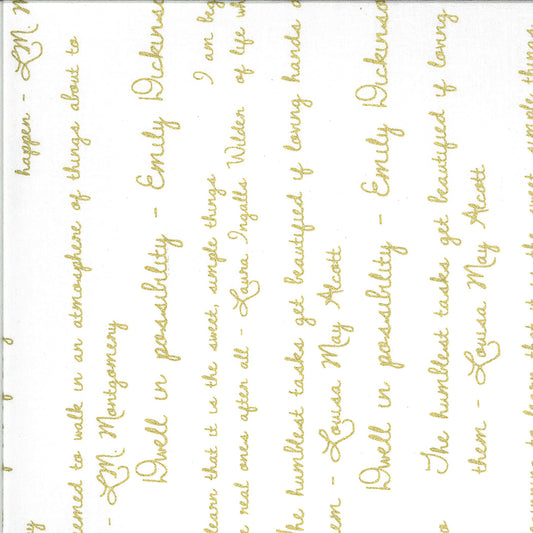 happen - L.M. M
emed to walk in an atmosphere of things about to
- L.M. Montgomery
Dwell in possibility - Emily Dickinso
I am beg
learn that it is the sweet, simple things
of life wh
e real ones after all - Laura Ingalls Wilder
he humblest tasks get beautified if loving hands
em - Louisa May Alcott
Dwell in possibility - Emily Dickinso
o
The humblest tasks get beautified if loving
them - Louisa May Alcott
to learn that it is the sweet, simple things